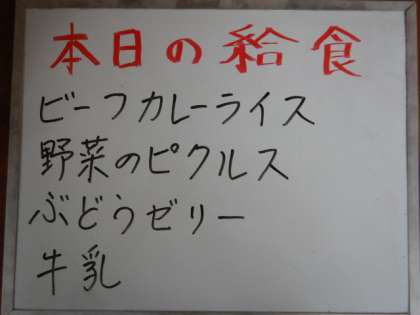 本日の給食
ビーフカレーライス
野菜のピクルス
ぶどうゼリー
牛乳